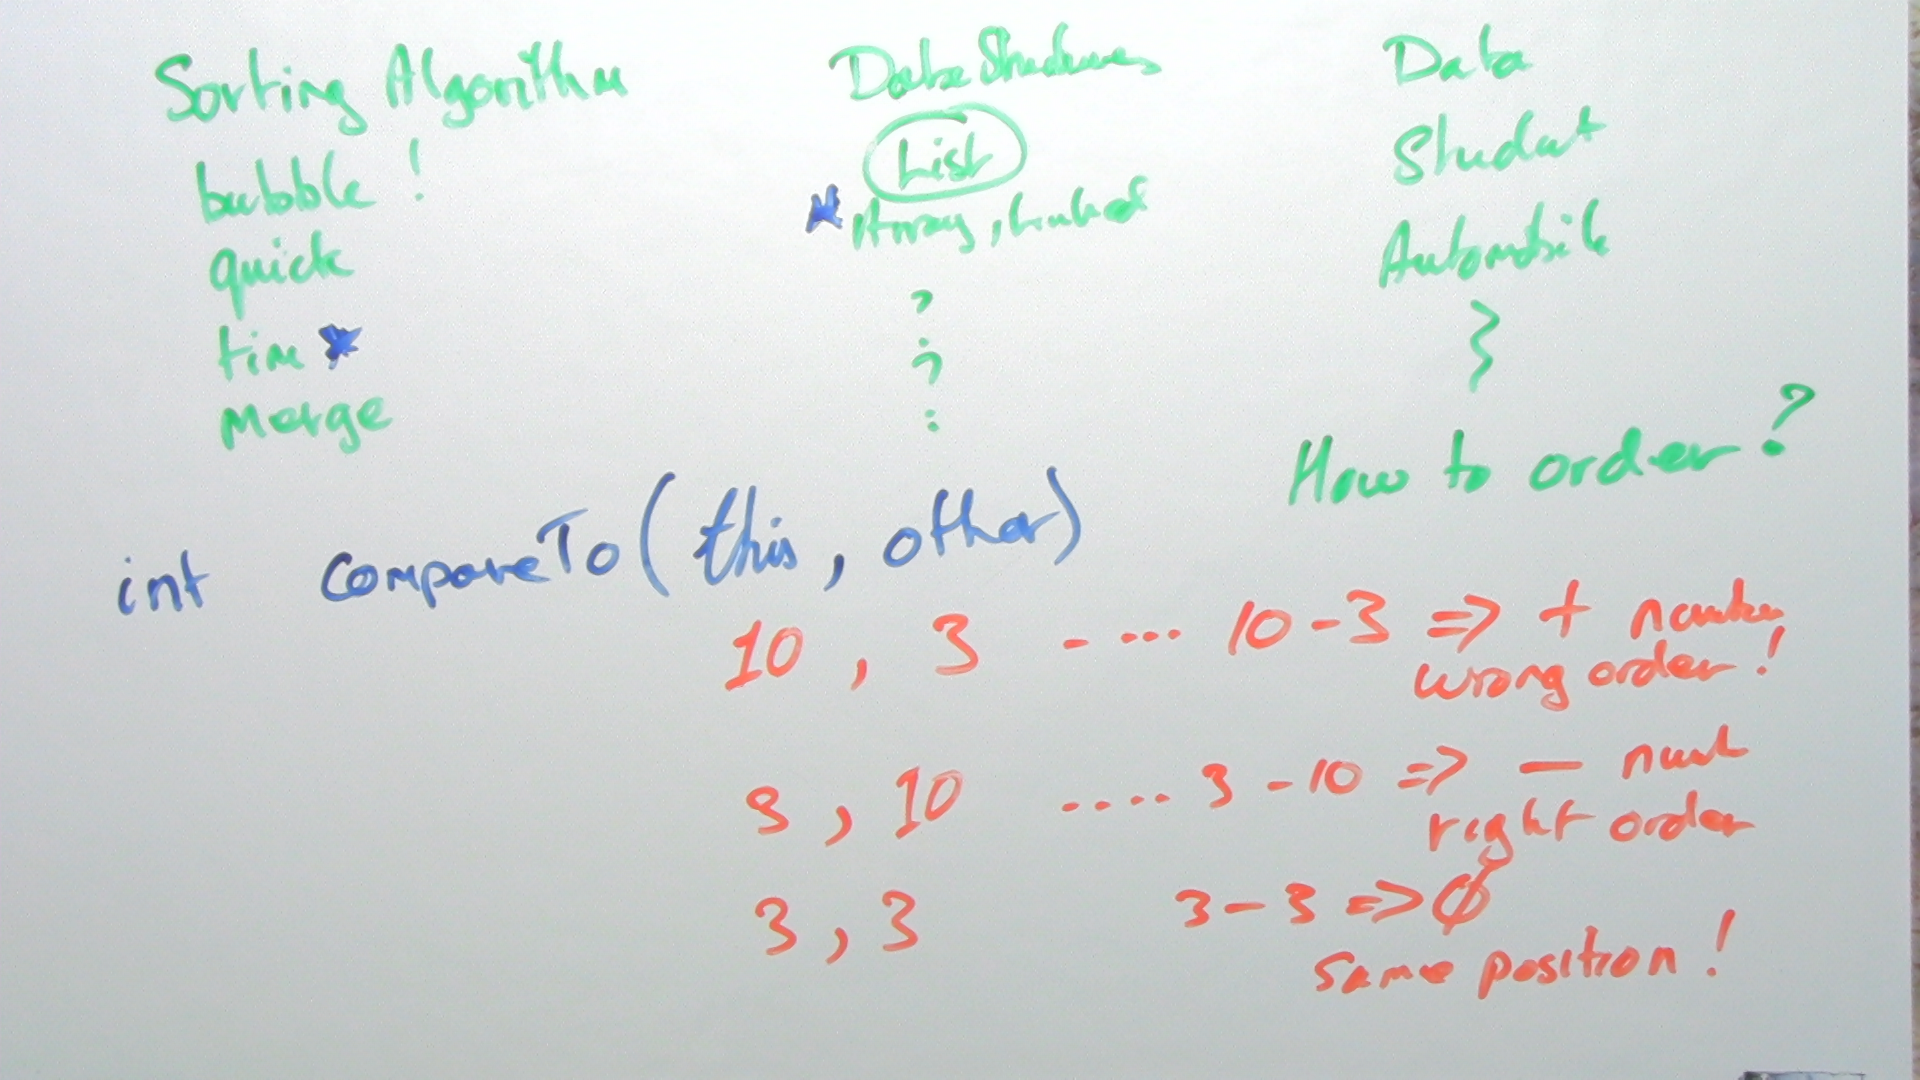 Sorting Algorithm
bubble !
quick
tim ★
Merge
Data Structures
List
★ Array, Linked
?
?
:
Data
Student
Automobile
}
How to order ?
int compareTo(this, other)
10 , 3 - ---- 10 - 3 => + number
wrong order !
3 , 10 .... 3 - 10 => -
right order
3 , 3 3 - 3 => Ø
same position !